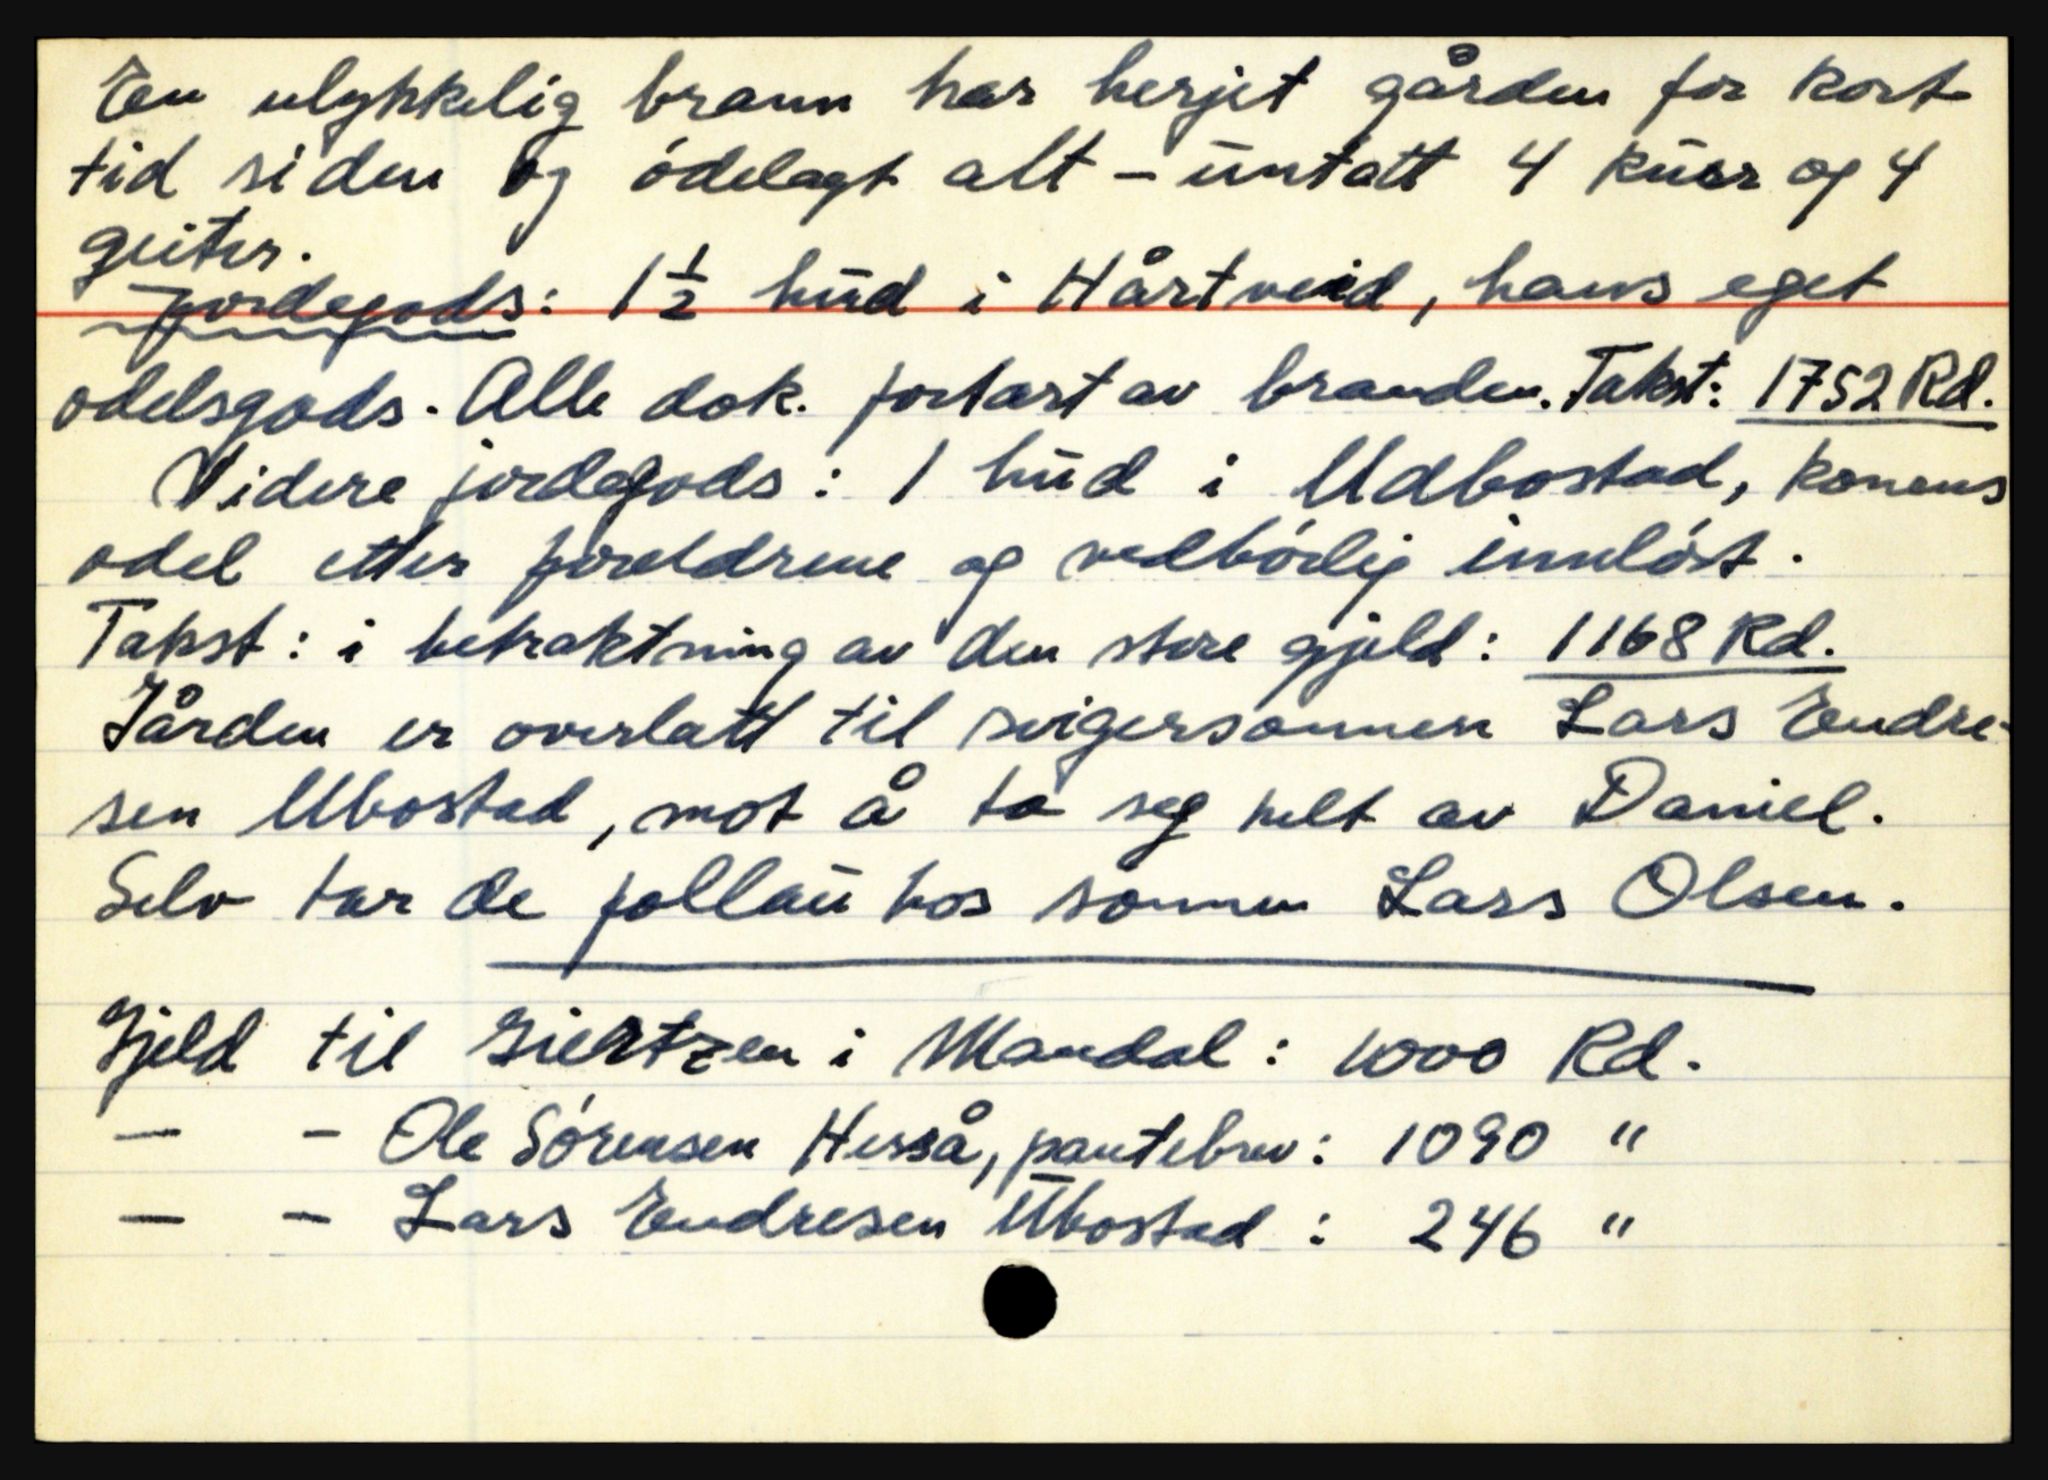 En ulykkelig brann har herjet gården for kort
tid siden og ødelagt alt - untatt 4 kuer og 4
geiter.
Jordegods: 1 1/2 hud i Hårtveid, hans eget
odelsgods. Alle dok. fortært av branden. Takst: 1752 Rd.
Videre jordegods: 1 hud i Udbostad, konens
odel etter foreldrene og vedbörlig innlöst.
Takst: i betraktning av den store gjeld: 1168 Rd.
Gården er overlatt til svigersønnen Lars Endre-
sen Ubostad, mot å ta seg helt av Daniel.
Selv tar de follau hos sønnen Lars Olsen.
Gjeld til Giertzen i Mandal: 1000 Rd.
— - Ole Sörensen Hesså, pantebrev: 1090 "
— - Lars Endresen Ubostad: 246 "